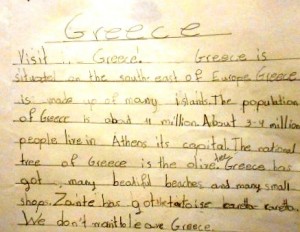 Greece
Visit ... Greece! Greece is
situated on the south east of Europe. Greece
is made up of many islands. The population
of Greece is about 11 million. About 3-4 million
people live in Athens its capital. The national
tree of Greece is the olive tree. Greece has
got many beatiful beaches and many small
shops. Zante has got the tortoise caretta caretta.
We don't want to leave Greece.